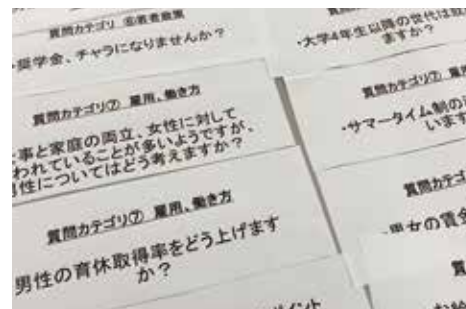 質問カテゴリ ⑥教育政策
奨学金、チャラになりませんか？
質問カテゴリ⑦ 雇用、働き方
事と家庭の両立、女性に対して
われていることが多いようですが、
性についてはどう考えますか？
質問カテゴリ⑦ 雇用、働き方
男性の育休取得率をどう上げます
か？
・大学4年生以降の世代は取
ますか？
質問カテゴリ⑦
・サマータイム制の
います
質問カテゴ
・男女の賃金
質